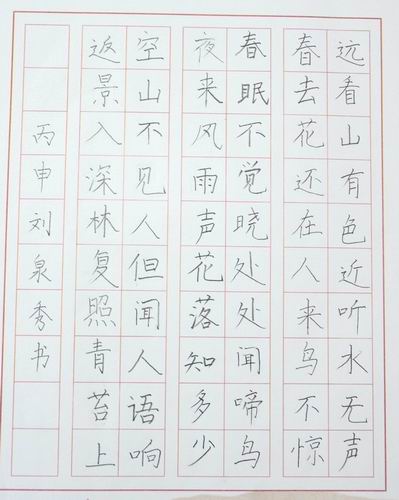 远看山有色近听水无声
春去花还在人来鸟不惊
春眠不觉晓处处闻啼鸟
夜来风雨声花落知多少
空山不见人但闻人语响
返景入深林复照青苔上
丙申刘泉秀书